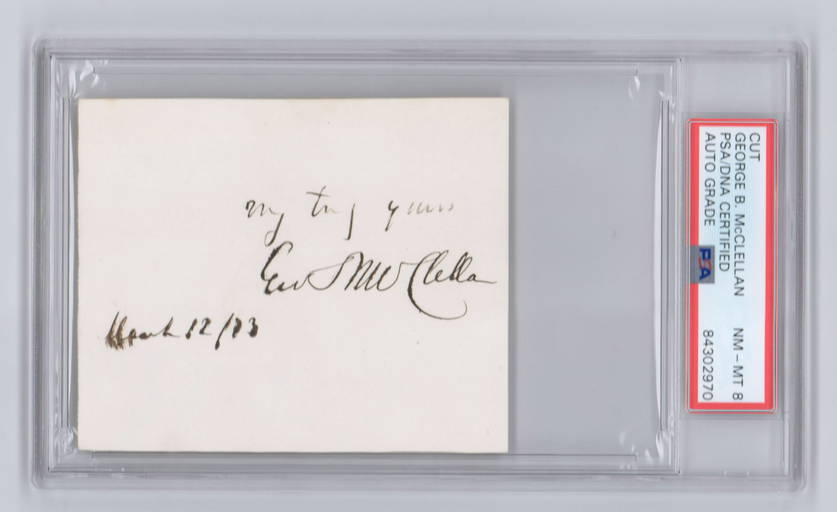 very truly yours
Geo B McClellan
March 12/83
CUT
GEORGE B. McCLELLAN NM – MT 8
PSA/DNA CERTIFIED
AUTO GRADE PSA 84302970